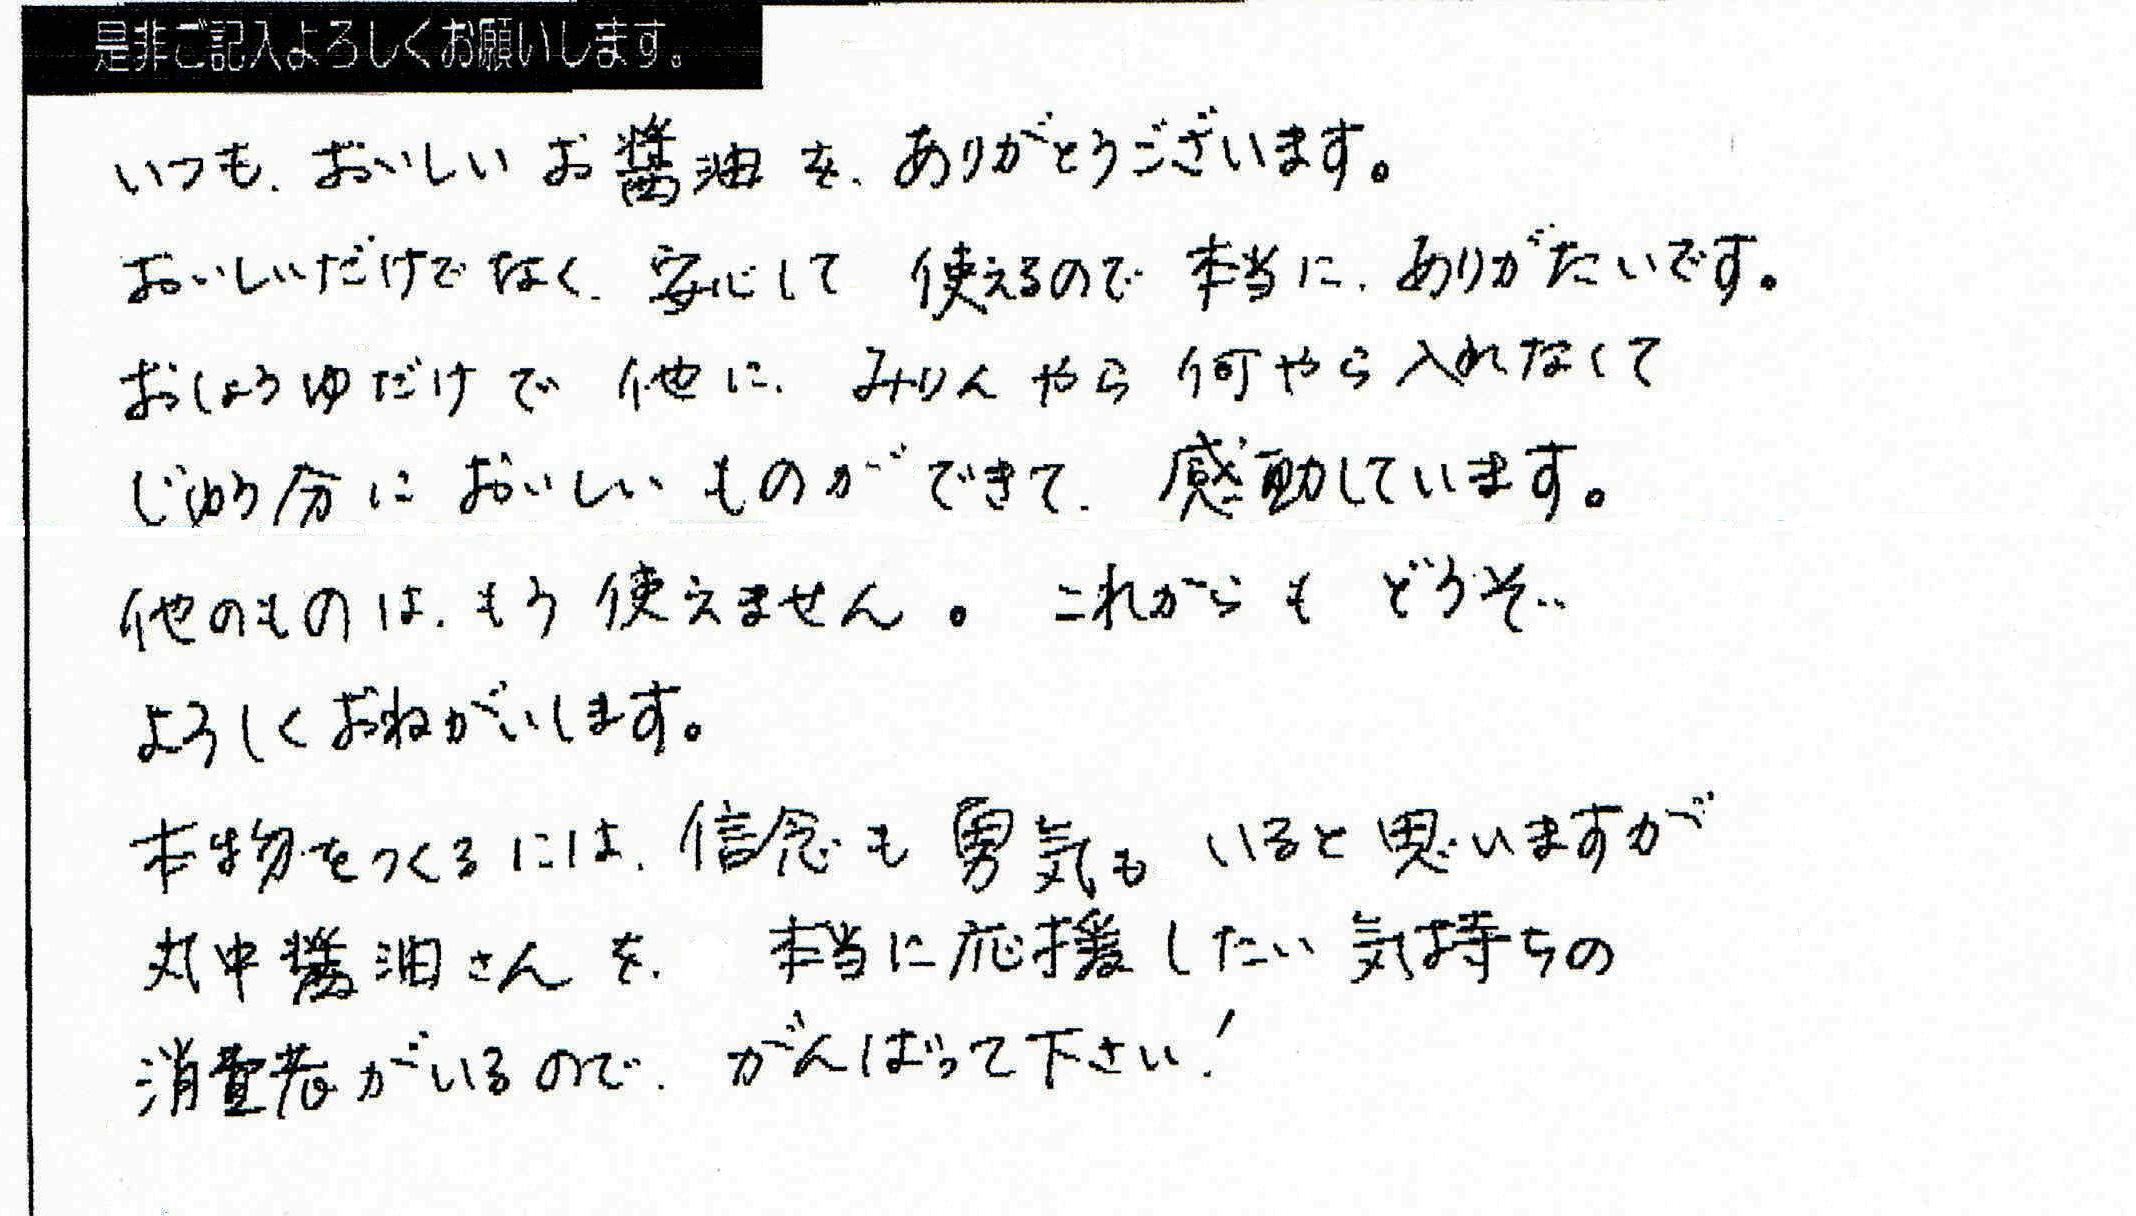 是非ご記入よろしくお願いします。
いつも、おいしいお醤油を、ありがとうございます。
おいしいだけでなく、安心して使えるので本当に、ありがたいです。
おしょうゆだけで他に、みりんやら何やら入れなくて
じゅう分においしいものができて、感動しています。
他のものは、もう使えません。これからもどうぞ、
よろしくおねがいします。
本物をつくるには、信念も勇気もいると思いますが
丸中醤油さんを、本当に応援したい気持ちの
消費者がいるので、がんばって下さい!